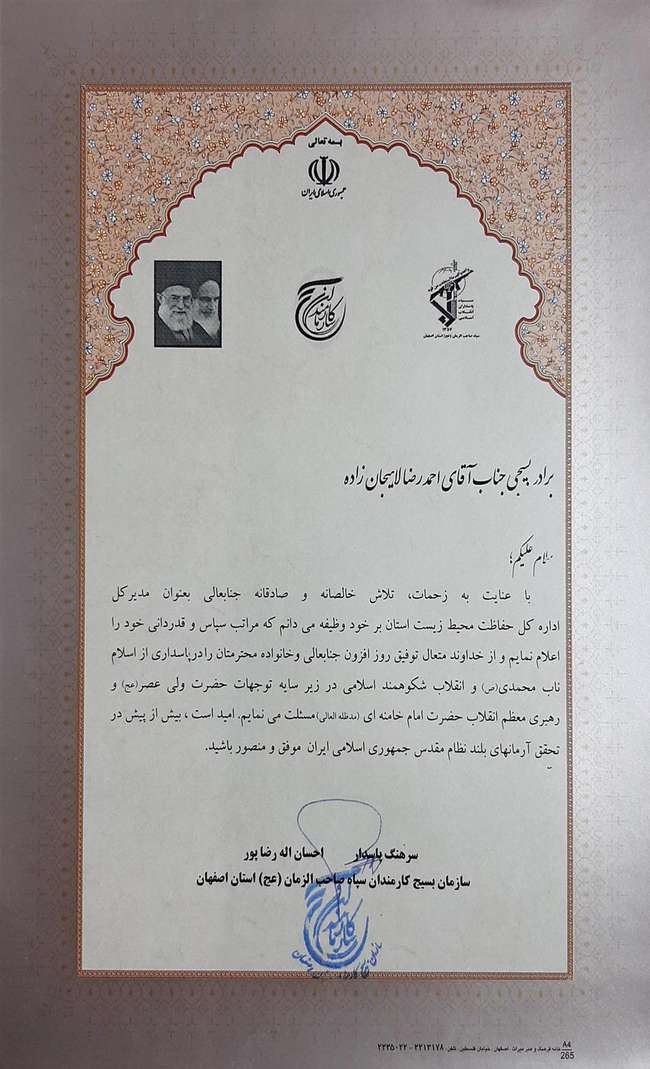 بسمه تعالی
جمهوری اسلامی ایران
کارمندان
سپاه
پاسداران
انقلاب
اسلامی
۱۳۵۷
سپاه صاحب الزمان (عج) استان اصفهان
برادر بسیجی جناب آقای احمدرضا لاهیجان زاده
سلام علیکم؛
با عنایت به زحمات، تلاش خالصانه و صادقانه جنابعالی بعنوان مدیرکل
اداره کل حفاظت محیط زیست استان بر خود وظیفه می دانم که مراتب سپاس و قدردانی خود را
اعلام نمایم و از خداوند متعال توفیق روز افزون جنابعالی وخانواده محترمتان رادرپاسداری از اسلام
ناب محمدی(ص) و انقلاب شکوهمند اسلامی در زیر سایه توجهات حضرت ولی عصر(عج) و
رهبری معظم انقلاب حضرت امام خامنه ای (مدظله العالی)مسئلت می نمایم. امید است ، بیش از پیش در
تحقق آرمانهای بلند نظام مقدس جمهوری اسلامی ایران موفق و منصور باشید.
سرهنگ پاسدار احسان اله رضا پور
سازمان بسیج کارمندان سپاه صاحب الزمان (عج) استان اصفهان
کارمندان
A4
خانه فرهنگ و هنر میراث ، اصفهان . خیابان فلسطین. تلفن: ۲۲۱۳۱۷۸ - ۲۲۳۵۰۲۲
265